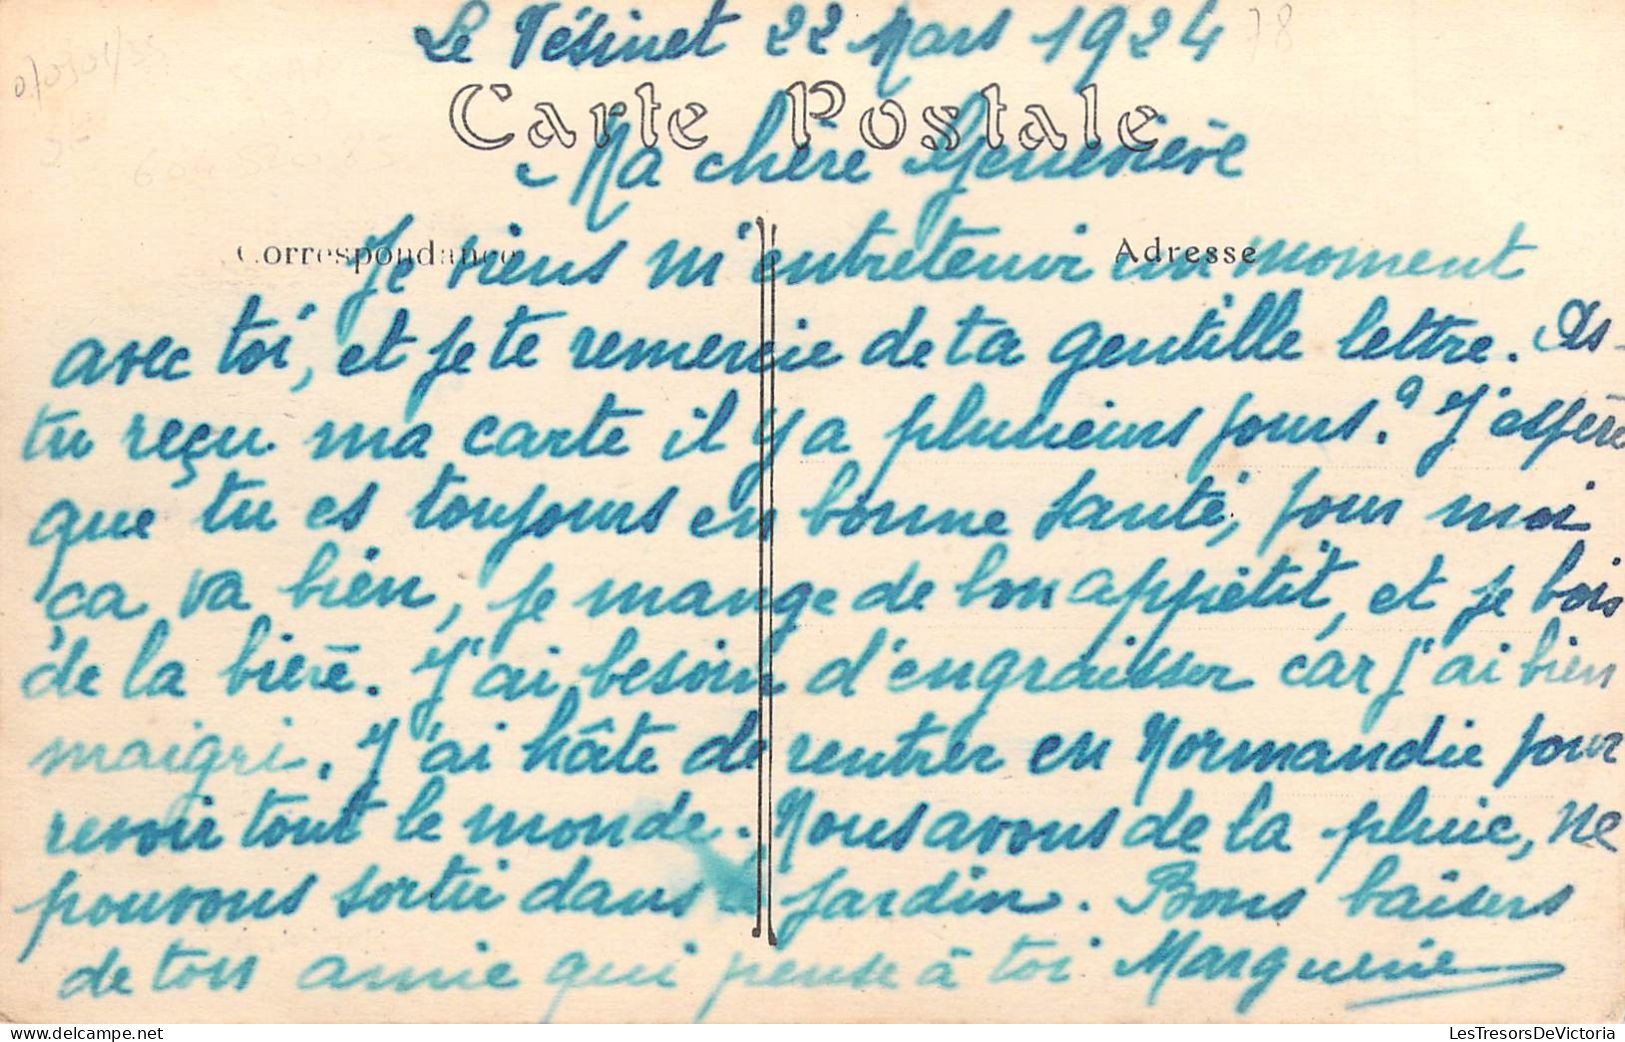 Le Vésinet 22 Mars 1924
Carte Postale
Ma chère Geneviève
Correspondance
Adresse
Je viens m'entretenir un moment
avec toi, et je te remercie de ta gentille lettre. As-
tu reçu ma carte il y a plusieurs jours? J'espère
que tu es toujours en bonne santé, pour moi
ça va bien, je mange de bon appétit, et je bois
de la bière. J'ai besoin d'engraisser car j'ai bien
maigri. J'ai hâte de rentrer en Normandie pour
revoir tout le monde. Nous avons de la pluie, ne
pouvons sortir dans le jardin. Bons baisers
de ton amie qui pense à toi Marguerite
78
LesTresorsDeVictoria
www.delcampe.net